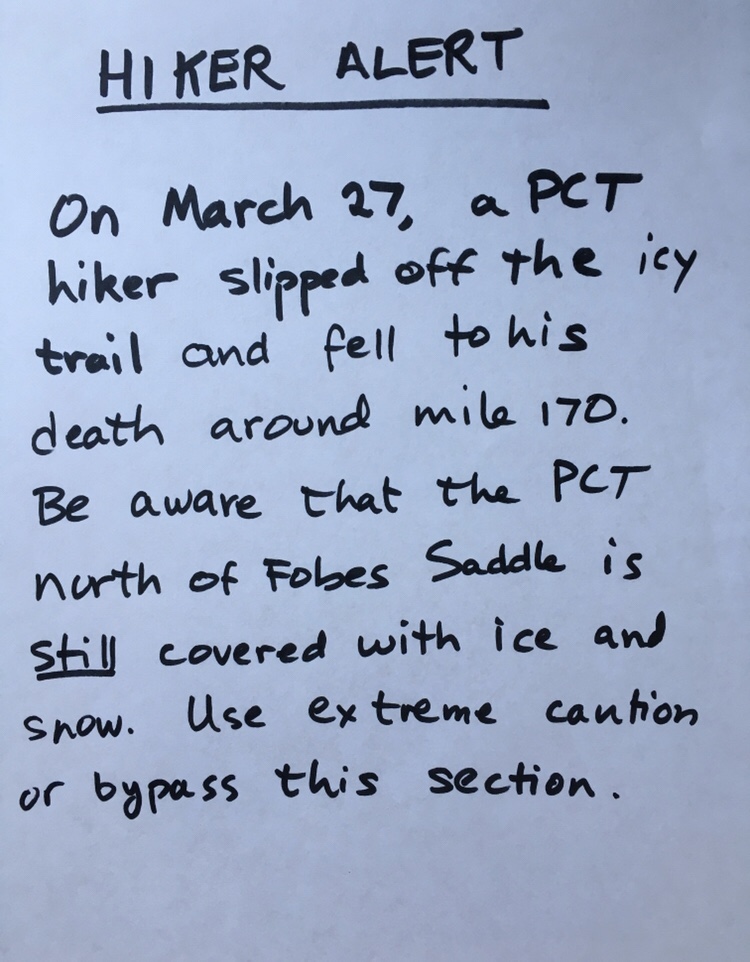 HIKER ALERT
On March 27, a PCT
hiker slipped off the icy
trail and fell to his
death around mile 170.
Be aware that the PCT
north of Fobes Saddle is
still covered with ice and
snow. Use extreme caution
or bypass this section.